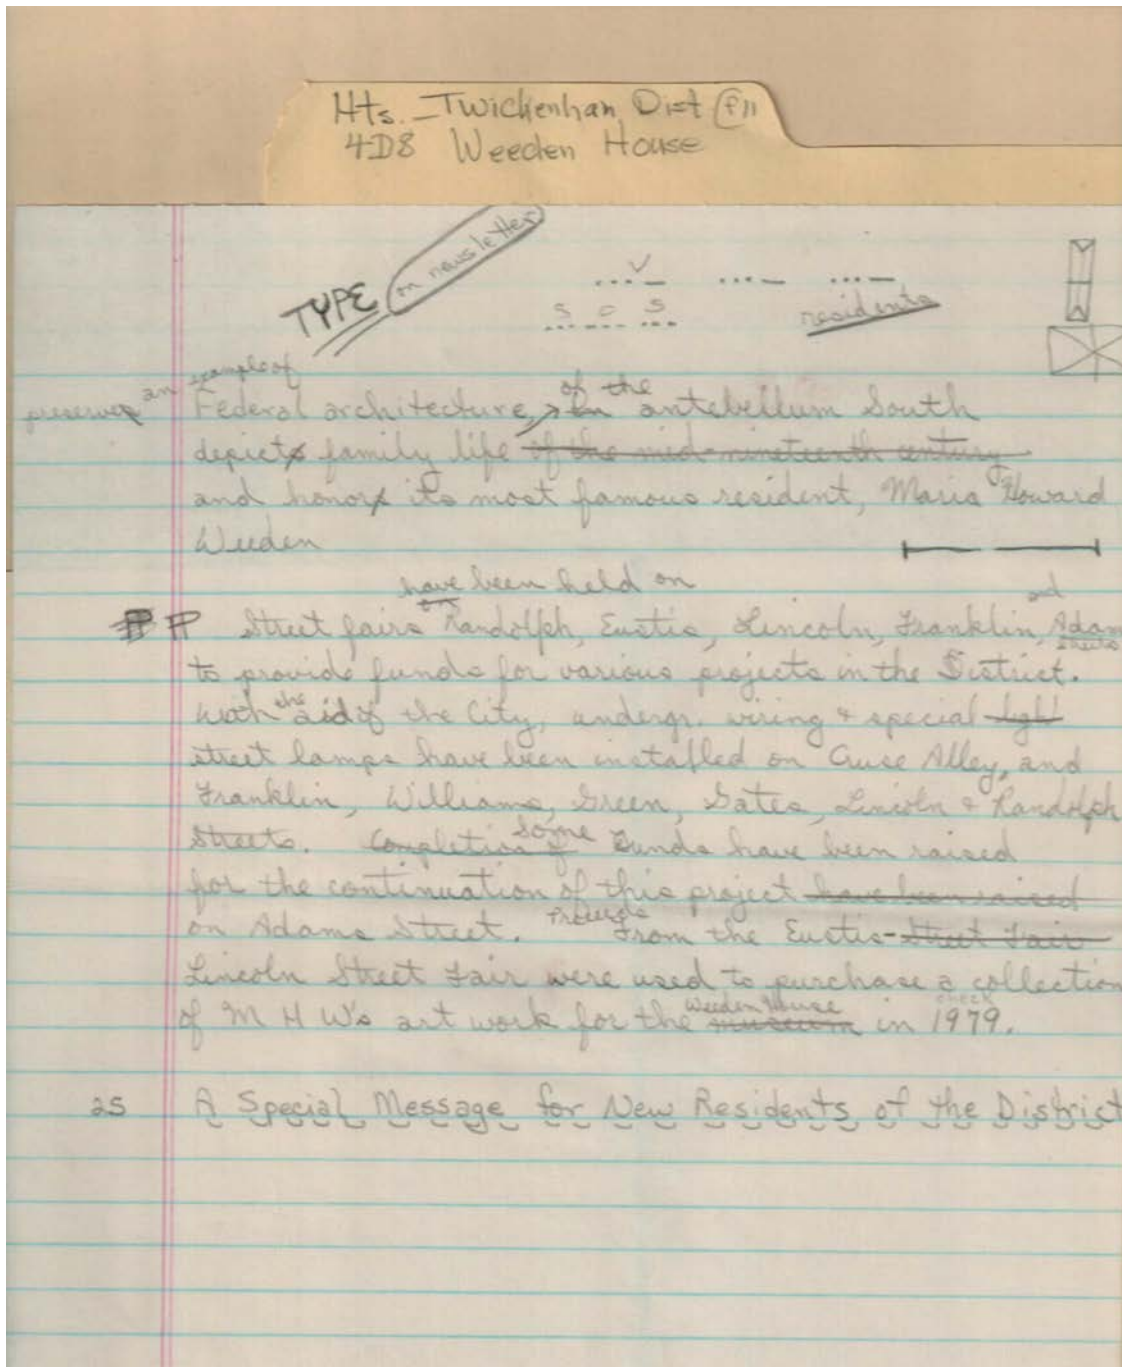 Hts. - Twickenhan Dist (F11)
4D8 Weeden House
TYPE on newsletter
V
S O S
residents
an example of
of the
preserves Federal architecture, in antebellum South
depicts family life of the mid-nineteenth century
and honors its most famous resident, Maria Howard
Weeden
have been held on
and
¶ Street fairs on Randolph, Eustis, Lincoln, Franklin, Adams
Streets
to provide funds for various projects in the District.
With the aid of the City, undergr. wiring & special light
street lamps have been installed on Cruse Alley, and
Franklin, Williams, Green, Gates, Lincoln & Randolph
Streets. Completion of Some Funds have been raised
for the continuation of this project have been raised
on Adams Street. Proceeds from the Eustis-Street Fair
Lincoln Street Fair were used to purchase a collection
Weeden House check
of M H W's art work for the museum in 1979.
25 A Special Message for New Residents of the District